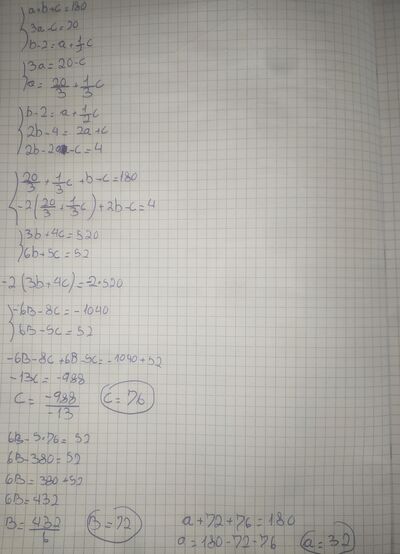 a+b+c=180
3a-c=20
b-2=a+1/2c
3a=20-c
a=20/3+1/3c
b-2=a+1/2c
2b-4=2a+c
2b-2a-c=4
20/3+1/3c+b-c=180
-2(20/3+1/3c)+2b-c=4
3b+4c=520
6b+5c=52
-2(3b+4c)=-2·520
-6B-8c=-1040
6B-5c=52
-6B-8c+6B-5c=-1040+52
-13c=-988
C=-988/-13 C=76
6B-5·76=52
6B-380=52
6B=380+52
6B=432
B=432/6 B=72
a+72+76=180
a=180-72-76 a=32